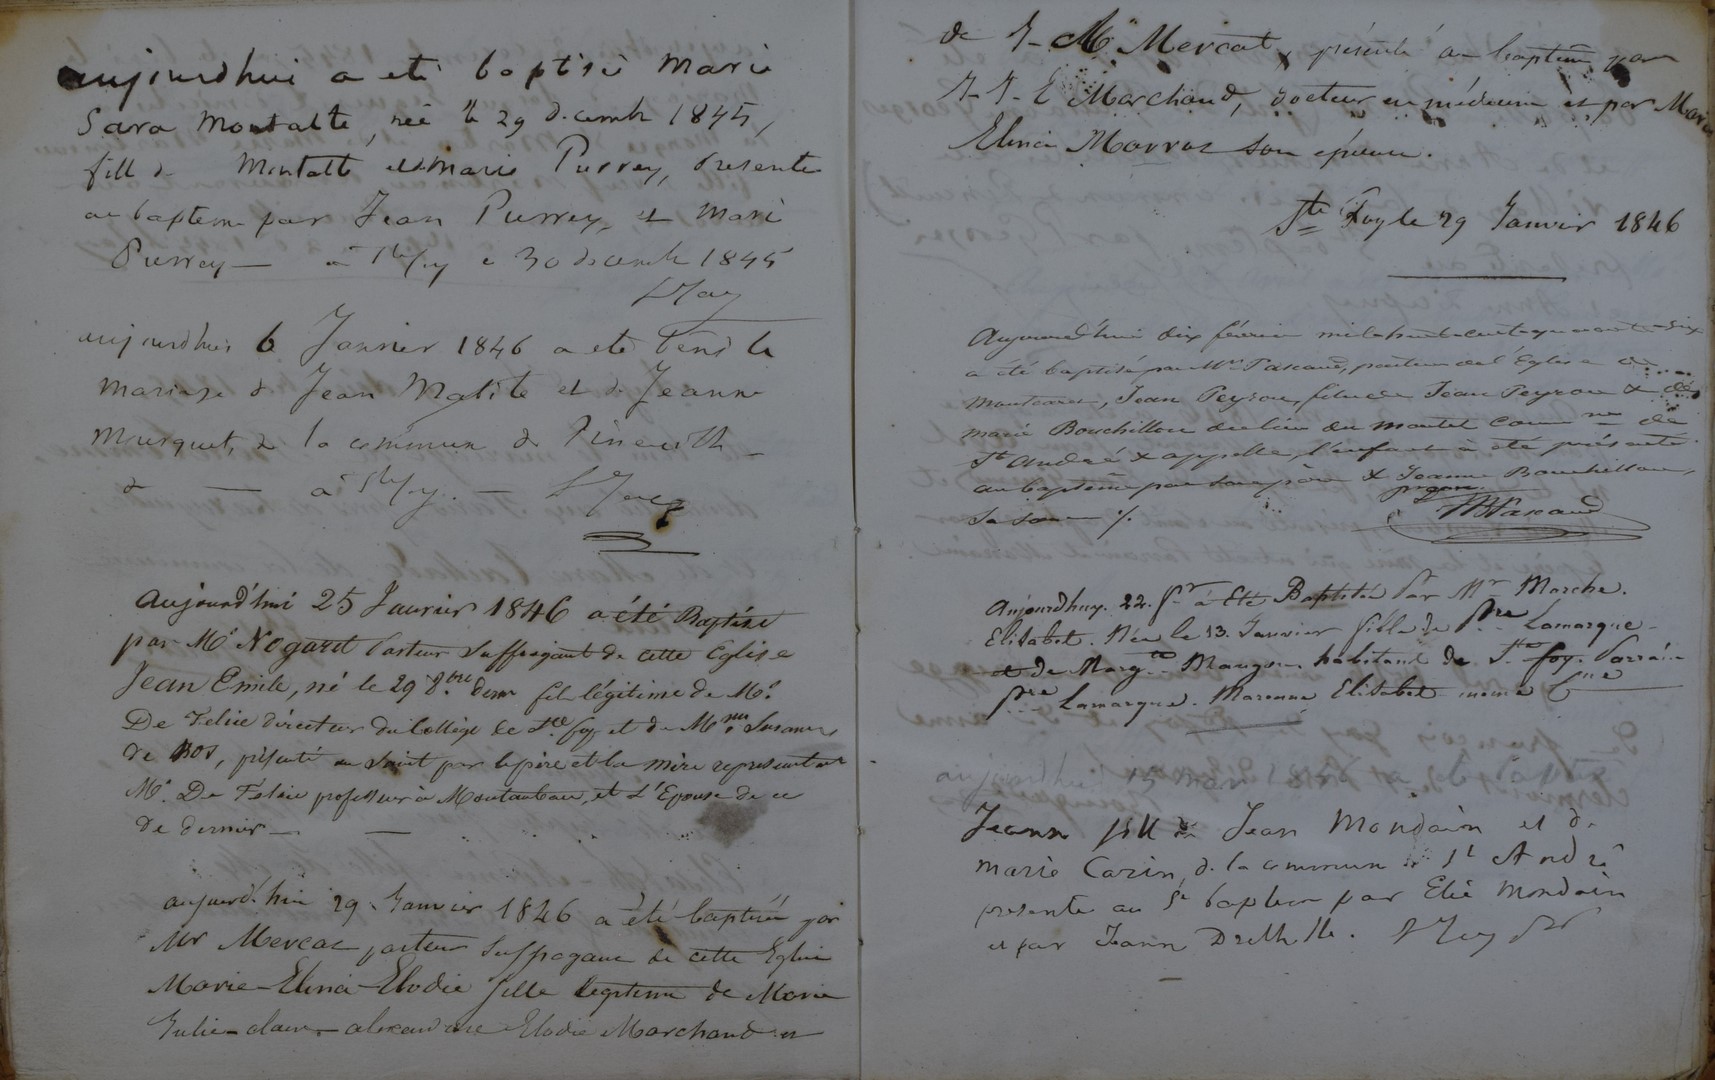 aujourdhui a eté baptisé Marie
Sara Montalté, née le 29 decemb 1845,
fill d Montalté et Marie Purrey, presente
au baptem par Jean Purrey, et Mari
Purrey — a Ste foy e 30 decemb 1845
aujourdhui 6 Janvier 1846 a eté beni le
Mariage d Jean Malité et d Jeanne
Mousquet, d la commun d Pineuilh
d — a Ste foy. —
Aujourd'hui 25 Janvier 1846 a été Baptisé
par Mr Nogaret Pasteur Suffragant de cette Eglise
Jean Emile, né le 29 8bre dern fil légitime de Mr
De Felice directeur du Collège de Ste foy et de Mme Susanne
de Bos, présenté au saint par le père et la mère representant
Mr. De Félice professeur à Montauban, et L'Epouse de ce
de dernier —
aujourd'hui 29 Janvier 1846 a été baptisée par
Mr Mercat pasteur suffragant de cette Eglise
Marie-Elina-Elodie fille legitime de Marie
Julie-claire-alexandrine Elodie Marchand et
de J- Mi Mercat, présenté au baptême par
J-J-E Marchand, docteur en médecine et par Marie
Elina Marras son épouse.
Ste Foy le 29 Janvier 1846
Aujourd'hui dix février mil huit-cent quarante-six
a été baptisé par Mr Pascaud, pasteur de l'Eglise de
Montcaret, Jean Peyrou, fils de Jean Peyrou & de
marie Bouchillou du lieu du montet Comne de
St André & appelle, l'enfant a été présenté
au baptême par son père & Jeanne Bouchillou,
sa soeur ./.
Aujourdhuy. 22. fr a Eté Baptisée Par Mr Marche.
Elisabet. Née le 13. Janvier fille de Pre Lamarque
et de Margte Maugon habitant de Ste foy. Parrain
Pre Lamarque. Marenne Elisabet meme Cne
aujourdhui 15 mars 1846
Jeann fill de Jean Mondain et d
Marie Cazin, d la commun d St André
presente au St baptem par Elie Mondain
et par Jeann